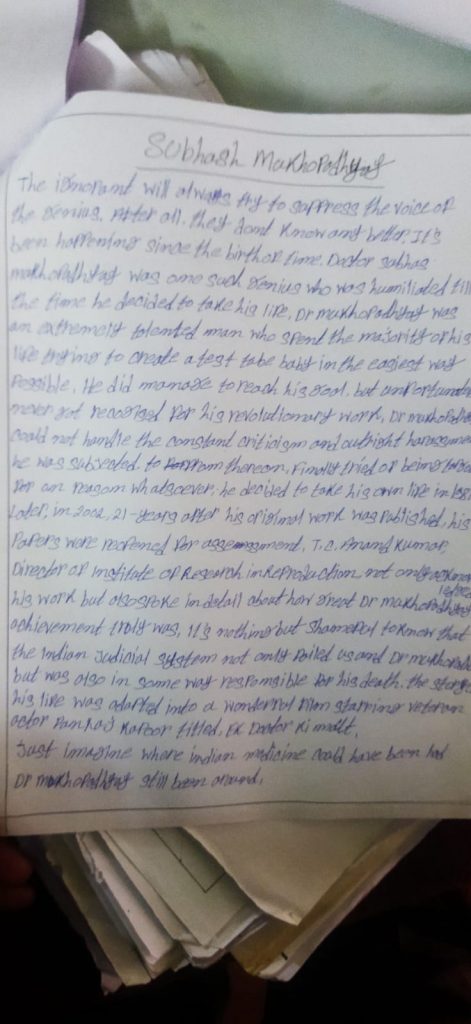 Subhash Mukhopadhyay
The ignorant will always try to suppress the voice of
the genius. After all, they dont know any better. It's
been happening since the birth of time. Doctor subhas
mukhopadhyay was one such genius who was humiliated till
the time he decided to take his life. Dr mukhopadhyay was
an extremely talented man who spend the majority of his
life trying to create a test tube baby in the easiest way
possible. He did manage to reach his goal, but unfortunately
never got recognised for his revolutionary work, Dr mukhopadhyay
could not handle the constant criticism and outright harassment
he was subjected to from thereon. Finally tired of being
for an reason whatsoever, he decided to take his own life in
Later, in 2002, 21-years after his original work was published, his
papers were reopened for assessment. T.C. Anand Kumar,
Director of institute of Research in Reproduction not only acknowledged
his work but also spoke in detail about how great Dr mukhopadhyay
achievement truly was, it's nothing but shameful to know that
the indian Judicial system not only failed us and Dr mukhopadhyay
but was also in some way responsible for his death. the story
his life was adapted into a wonderful film starring veteran
actor Pankaj Kapoor titled, EK Doctor Ki mout.
Just imagine where indian medicine could have been had
Dr mukhopadhyay still been around.